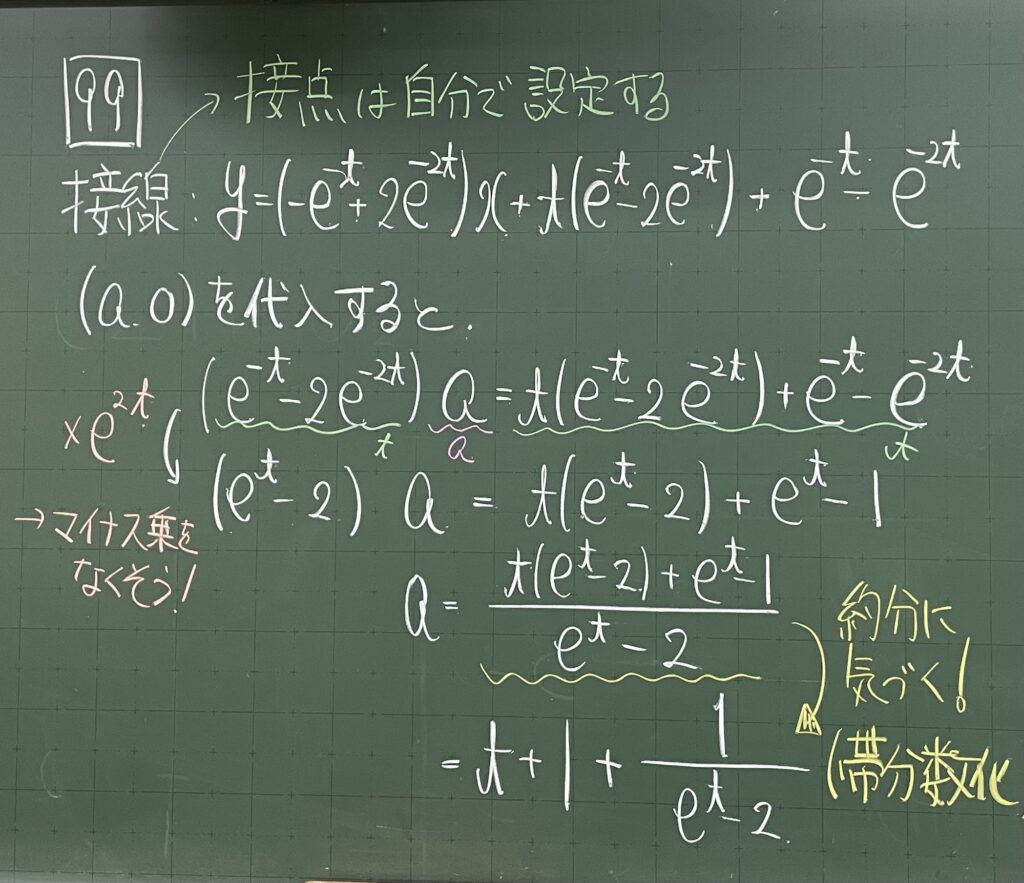 99
接点は自分で設定する
接線: y=(-e^{-t}+2e^{-2t})x+t(e^{-t}-2e^{-2t})+e^{-t}-e^{-2t}
(a.0)を代入すると.
(e^{-t}-2e^{-2t})a=t(e^{-t}-2e^{-2t})+e^{-t}-e^{-2t}
t a t
×e^{2t}
(e^t-2) a = t(e^t-2)+e^t-1
→マイナス乗を
なくそう!
a= \frac{t(e^t-2)+e^t-1}{e^t-2}
約分に
気づく!
(帯分数化
=t+1+\frac{1}{e^t-2}